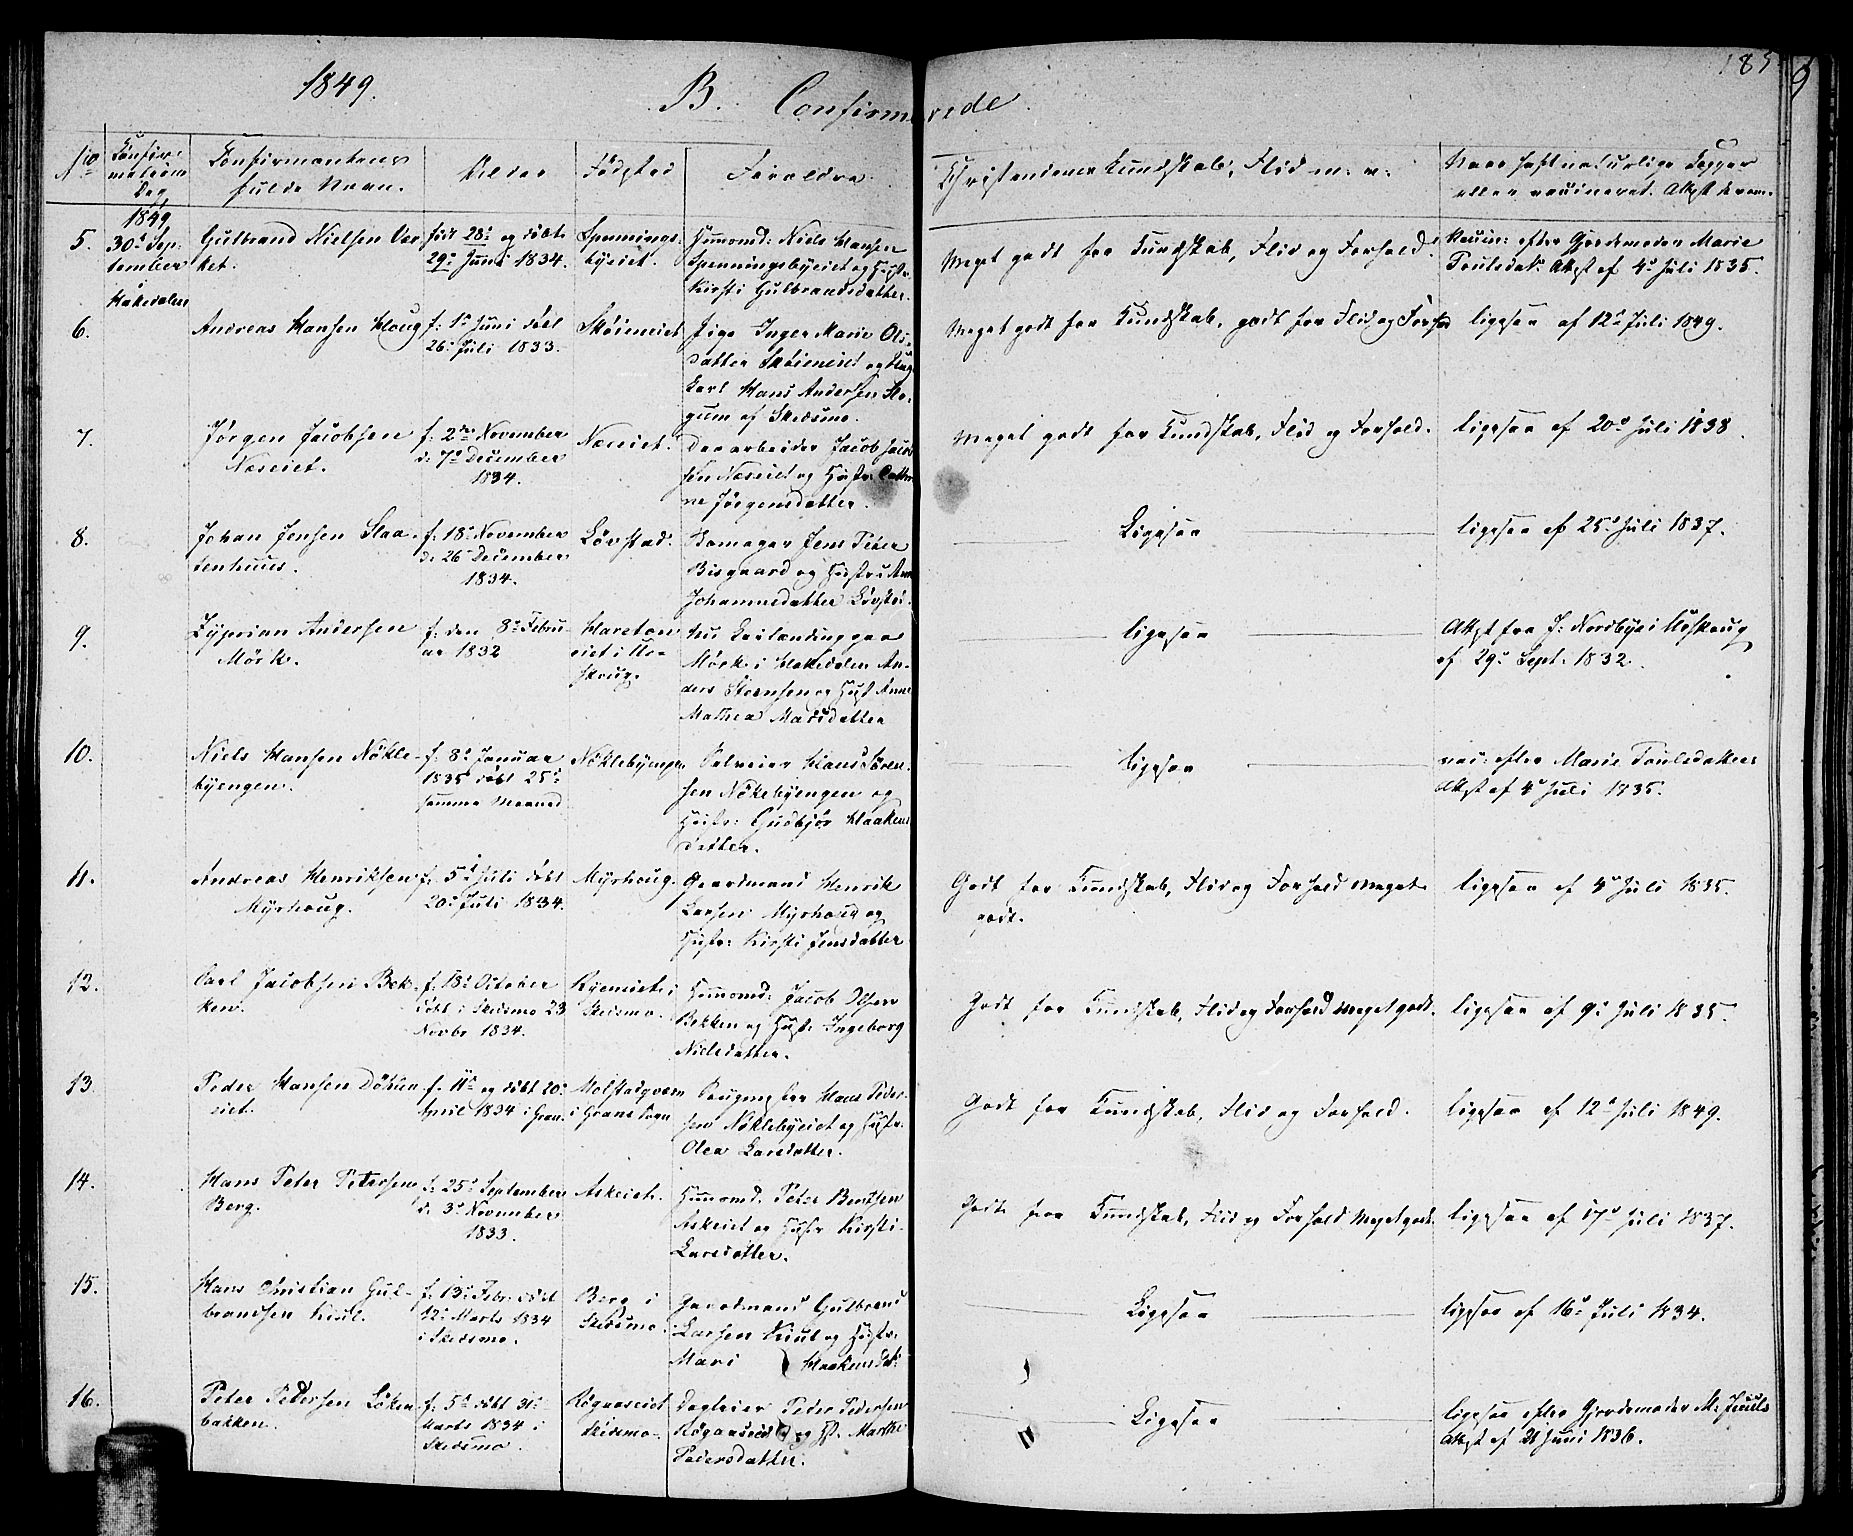 1849.
B. Confirmerede.
185
No
Confir-
mations
Dag.
Confirmantens
fulde Navn.
Alder
Fødsted
Forældre.
Christendoms Kundskab, Flid m. v.
Naar haft naturlige Kopper
eller vaccineret. Attest derom.
1849
5.
30te Sep-
tember
i
Hakedalen
Gulbrand Nielsen Var-
ket.
født 28de og døbt
29de Juni 1834.
Spennings-
byeiet.
Huusmd: Niels Hansen
Spenningsbyeiet og Hustr.
Kirsti Gulbrandsdatter.
Meget godt for Kundskab, Flid og Forhold.
Vaccin: efter Gjordemoder Marie
Poulsdat: Attest af 4de Juli 1835.
6.
Andreas Hansen Houg
f: 1ste Juni døbt
26de Juli 1833.
Skøieneiet
Pige Inger Marie Ols-
datter Skøieneiet og Ung-
karl Hans Andersen
af Skedsmo.
Meget godt for Kundskab, godt for Flid og Forhold
ligesaa af 12te Juli 1849.
7.
Jørgen Jacobsen
Næseiet.
f: 2den November
d: 7de December
1834.
Næseiet.
Dagarbeider Jacob Jacob-
sen Næseiet og Hustr:
Jørgensdatter.
Meget godt for Kundskab, Flid og Forhold.
ligesaa af 20de Juli 1838.
8.
Johan Jensen Slaa-
tenhuus.
f: 18de November
d: 26de December
1834.
Løvstad.
Jens Peter
Bisgaard og Hustru Anne
Johannesdatter Løvstad.
Ligesaa
ligesaa af 25de Juli 1837.
9.
Zyprian Andersen
Mørk.
f: den 8de Febru-
ar 1832
Harston-
eiet i Ur-
skoug.
Nu paa
Mørk i Hakedalen An-
ders Steensen og Hust. Anne
Mathea Madsdatter
ligesaa
Attest fra J: Nordbye i Urskoug
af 29de Sept. 1832.
10.
Niels Hansen Nøkle-
byengen.
f: 8de Januar
1835 døbt 25de
samme Maaned
Nøklebyengen.
Selveier Hans Søren-
sen Nøklebyengen og
Hustr: Gudbjør Haakens-
datter.
ligesaa
vac: efter Marie Poulsdatters
Attest af 4de Juli 1835.
11.
Andreas Henriksen
Myrhoug.
f: 5te Juli døbt
20de Juli 1834.
Myrhoug.
Gaardmand Henrik
Larsen Myrhoug og
Hustr: Kirsti Jensdatter
Godt for Kundskab, Flid og Forhold meget
godt.
ligesaa af 4de Juli 1835.
12.
Carl Jacobsen Bek-
ken.
f: 18de October
døbt i Skedsmo 23
Novbr 1834.
Ryeneiet i
Skedsmo.
Huusmd: Jacob Olsen
Bekken og Hustr: Ingeborg
Nielsdatter.
Godt for Kundskab, Flid og Forhold meget godt.
ligesaa af 9de Juli 1835.
13.
Peder Hansen Døhlen-
eiet.
f. 11te og døbt 20de
April 1834 i Gran.
Molstadqvern
i Grans Sogn
Hans Peder-
sen Nøklebyeiet og Hustr.
Olea Larsdatter.
Godt for Kundskab, Flid og Forhold.
ligesaa af 12te Juli 1849.
14.
Hans Peter Petersen
Berg.
f: 25de September
d: 3de November
1833.
Askeiet.
Huusmd. Peter Bentsen
Askeiet og Hustr Kirsti
Larsdatter.
Godt for Kundskab, Flid og Forhold meget godt.
ligesaa af 17de Juli 1837.
15.
Hans Christian Gul-
brandsen Kiul.
f: 13de Febr: døbt
12te Marts 1834
i Skedsmo.
Berg i
Skedsmo.
Gaardmand Gulbrand
Larsen Kiul og Hustr.
Mari Haakensdat:
Ligesaa
ligesaa af 16de Juli 1834.
16.
Peter Pedersen Løken-
bakken.
f: 5te døbt 31te
Marts 1834 i
Skedsmo.
Røgaaseiet
Skedsmo.
Dagleier Peder Pedersen
Røgaaseiet og H. Marthe
Pedersdatter.
Ligesaa
ligesaa efter Gjordemoder M. Juuls
Attest af 26 Juni 1836.